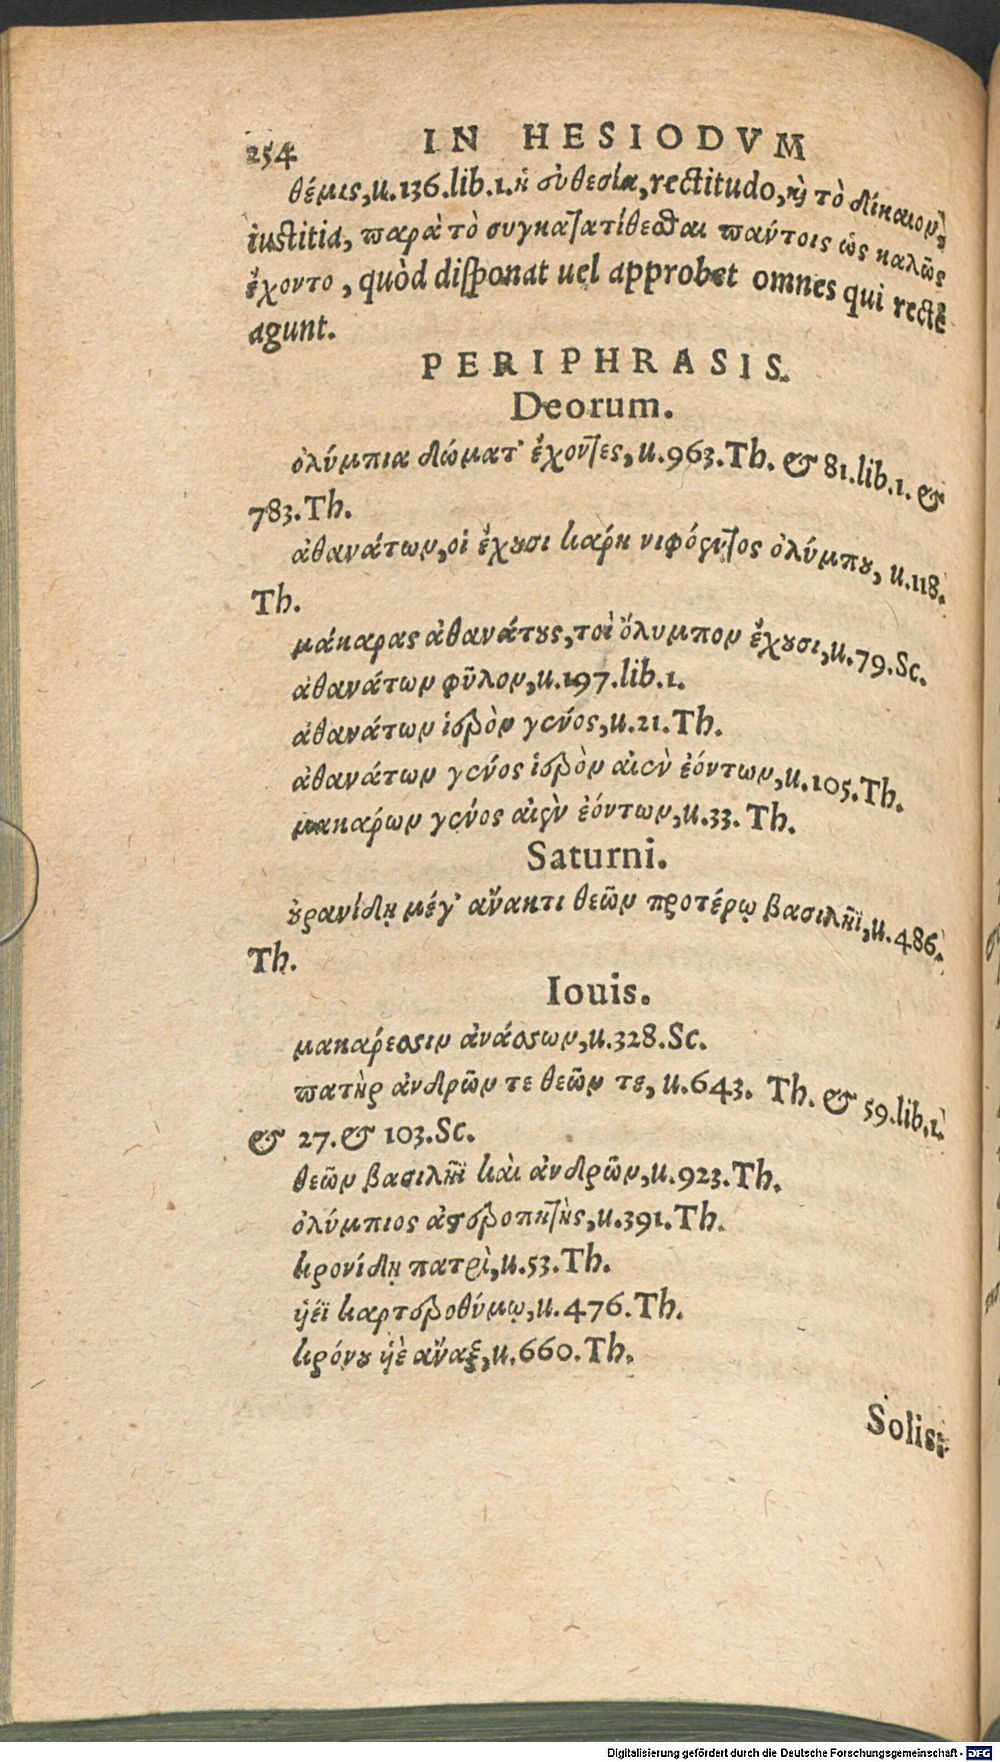 254 IN HESIODVM
θέμις, u. 136. lib. 1. ἡ εὐθεσία, rectitudo, καὶ τὸ δίκαιον,
iustitia, παρὰ τὸ συγκατατίθεσθαι παύτοις ὡς καλῶς
ἔχοντο, quòd disponat uel approbet omnes qui rectè
agunt.
PERIPHRASIS.
Deorum.
ὀλύμπια δώματ' ἔχοντες, u. 963. Th. & 81. lib. 1. &
783. Th.
ἀθανάτων, οἱ ἔχουσι κάρη νιφόεντος ὀλύμπου, u. 118.
Th.
μάκαρας ἀθανάτους, τοὶ ὄλυμπον ἔχουσι, u. 79. Sc.
ἀθανάτων φῦλον, u. 197. lib. 1.
ἀθανάτων ἱερὸν γένος, u. 21. Th.
ἀθανάτων γένος ἱερὸν αἰὲν ἐόντων, u. 105. Th.
μακάρων γένος αἰὲν ἐόντων, u. 33. Th.
Saturni.
οὐρανίδῃ μέγ' ἄνακτι θεῶν προτέρῳ βασιλῆϊ, u. 486.
Th.
Iouis.
μακάρεσσιν ἀνάσσων, u. 328. Sc.
πατὴρ ἀνδρῶν τε θεῶν τε, u. 643. Th. & 59. lib. 1.
& 27. & 103. Sc.
θεῶν βασιλῆϊ καὶ ἀνδρῶν, u. 923. Th.
ὀλύμπιος ἀστεροπητὴς, u. 391. Th.
κρονίδῃ πατρὶ, u. 53. Th.
υἱέϊ καρτεροθύμῳ, u. 476. Th.
κρόνου υἱὲ ἄναξ, u. 660. Th.
Solis.
Digitalisierung gefördert durch die Deutsche Forschungsgemeinschaft - DFG